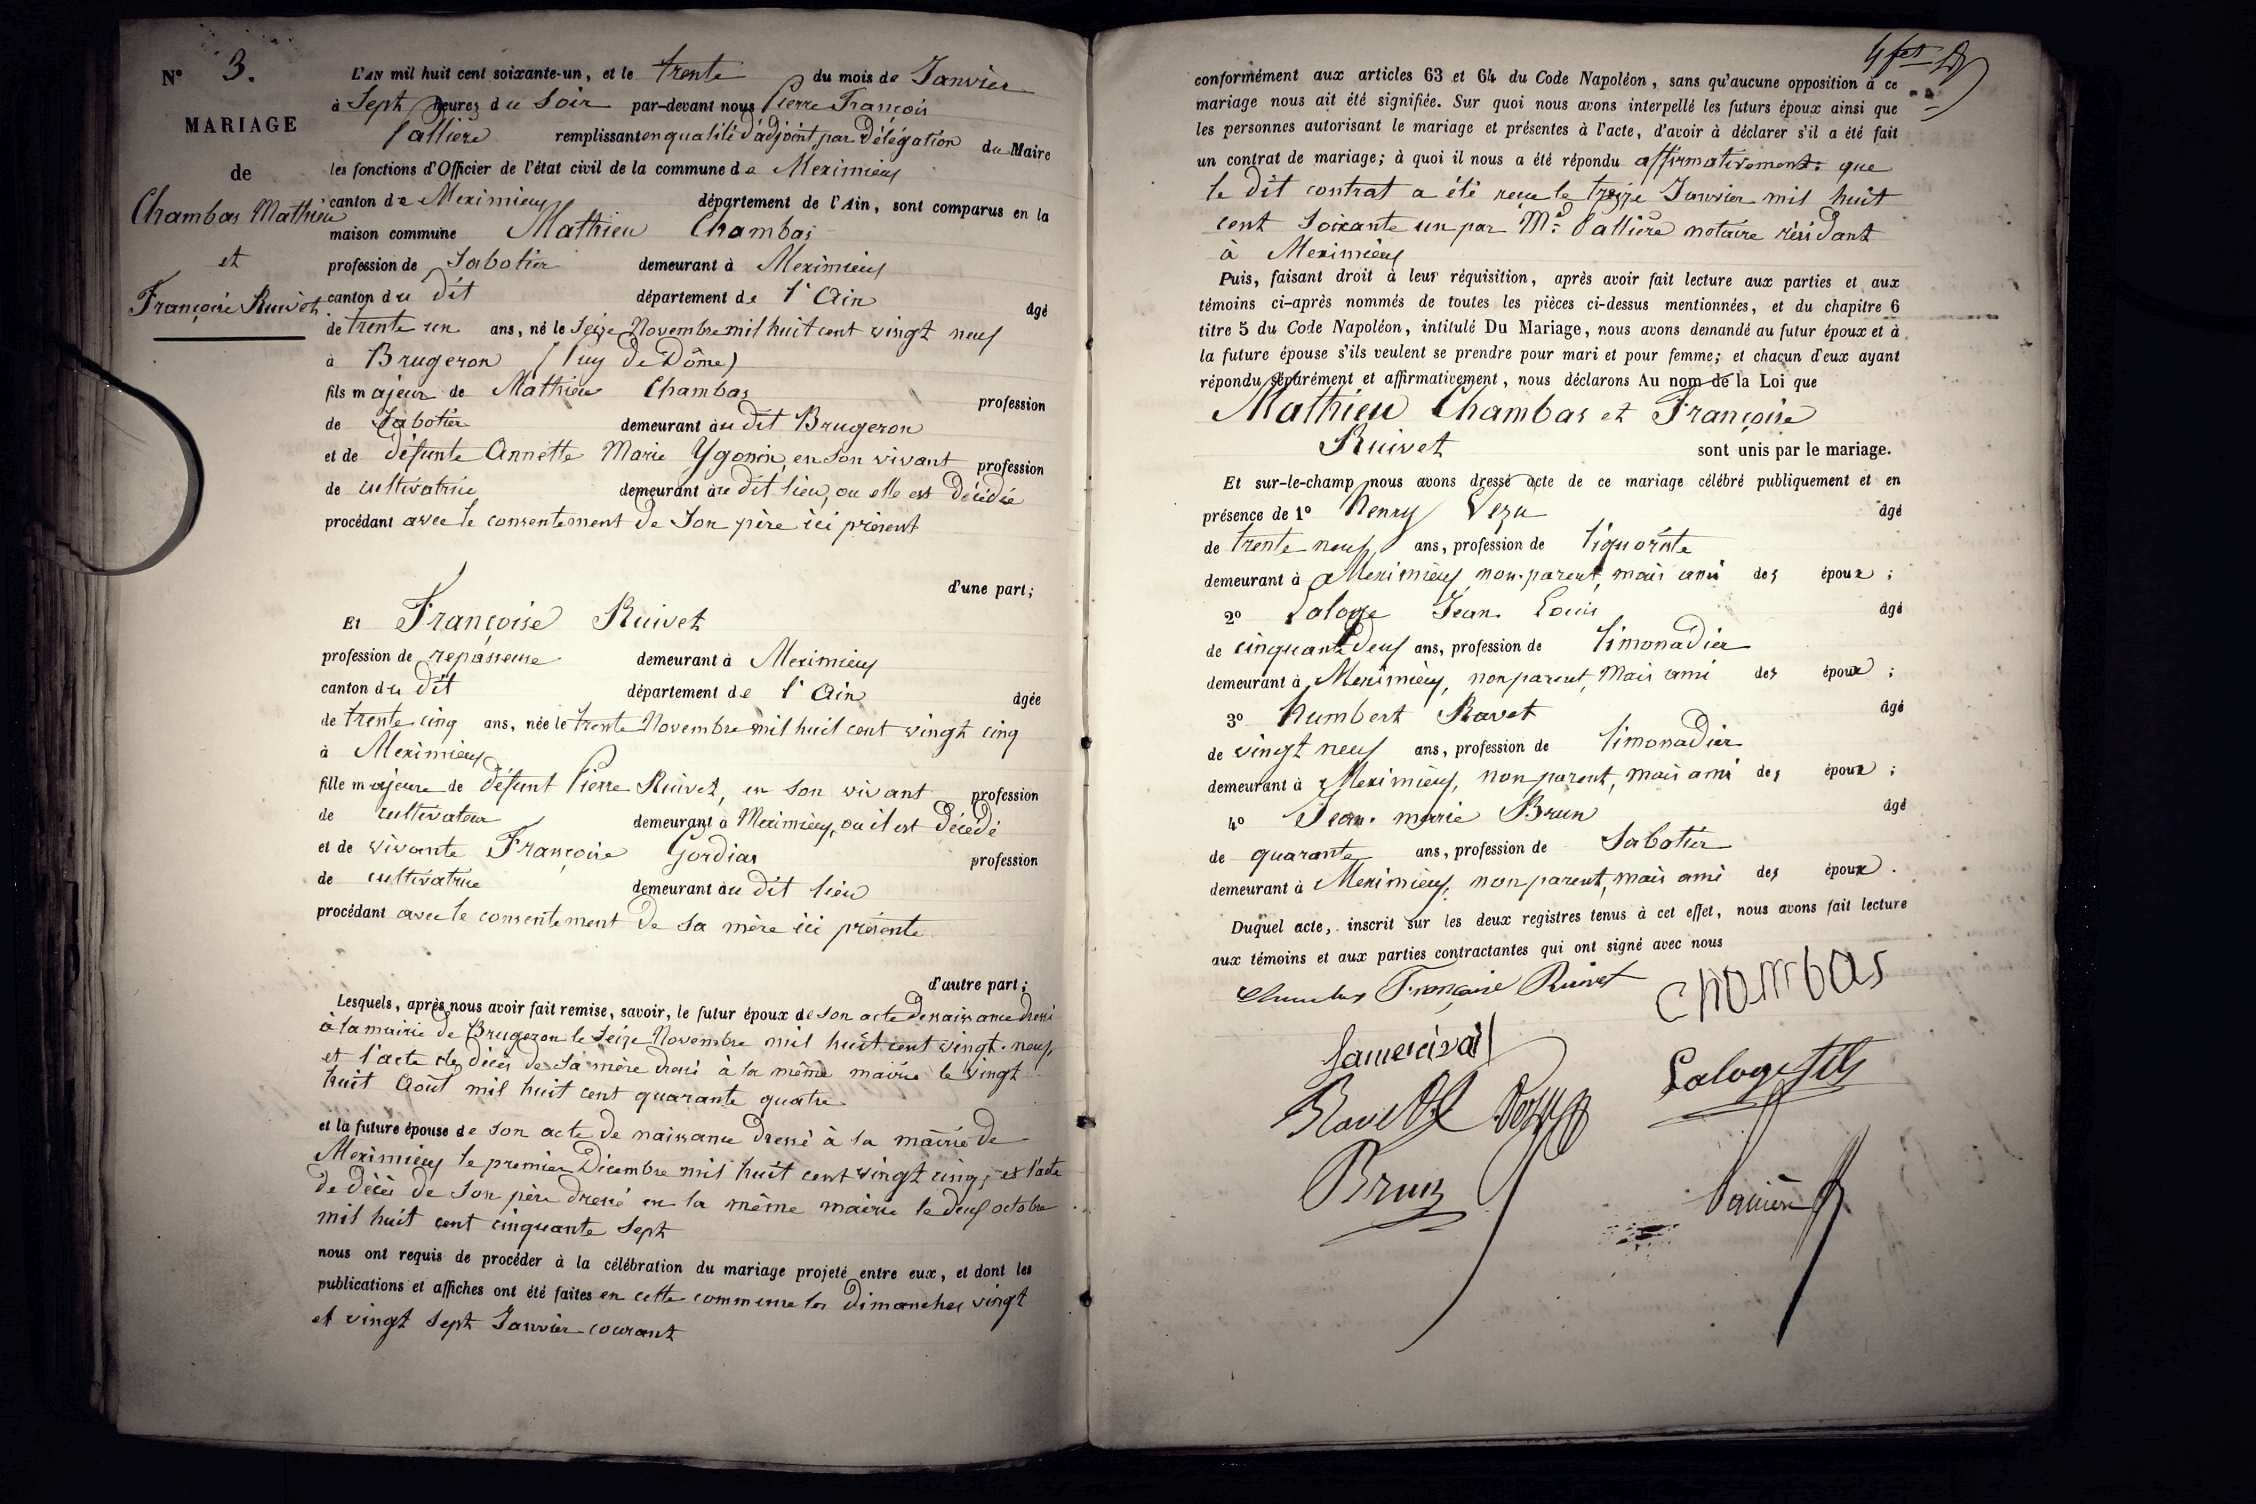 N° 3.
MARIAGE
de
Chambas Mathieu
et
Françoise Ruivet
L'AN mil huit cent soixante-un, et le trente du mois de Janvier
à Sept heures du soir par-devant nous Pierre François
Pallière remplissant en qualité d'adjoint, par délégation du Maire
les fonctions d'Officier de l'état civil de la commune de Meximieux
canton de Meximieux département de l'Ain, sont comparus en la
maison commune Mathieu Chambas
profession de Sabotier demeurant à Meximieux
canton du dit département de l'Ain âgé
de trente un ans, né le Seize Novembre mil huit cent vingt neuf
à Brugeron (Puy de Dôme)
fils majeur de Mathieu Chambas profession
de Sabotier demeurant au dit Brugeron
et de défunte Annette Marie Ygonin, en son vivant profession
de cultivatrice demeurant au dit lieu, ou elle est décédée
procédant avec le consentement de Son père ici présent
d'une part;
Et Françoise Ruivet
profession de repasseuse demeurant à Meximieux
canton du dit département de l'Ain âgée
de trente cinq ans, née le trente Novembre mil huit cent vingt cinq
à Meximieux
fille majeure de défunt Pierre Ruivet, en son vivant profession
de cultivateur demeurant à Meximieux, ou il est décédé
et de vivante Françoise Gordias profession
de cultivatrice demeurant au dit lieu
procédant avec le consentement de sa mère ici présente
d'autre part;
Lesquels, après nous avoir fait remise, savoir, le futur époux de son acte de naissance dressé
à la mairie de Brugeron le Seize Novembre mil huit cent vingt-neuf,
et l'acte de décès de sa mère dressé à la même mairie le vingt
huit Août mil huit cent quarante quatre
et la future épouse de son acte de naissance dressé à la mairie de
Meximieux le premier Décembre mil huit cent vingt cinq, et l'acte
de décès de son père dressé en la même mairie le deux octobre
mil huit cent cinquante sept
nous ont requis de procéder à la célébration du mariage projeté entre eux, et dont les
publications et affiches ont été faites en cette commune les dimanches vingt
et vingt sept Janvier courant
conformément aux articles 63 et 64 du Code Napoléon, sans qu'aucune opposition à ce
mariage nous ait été signifiée. Sur quoi nous avons interpellé les futurs époux ainsi que
les personnes autorisant le mariage et présentes à l'acte, d'avoir à déclarer s'il a été fait
un contrat de mariage; à quoi il nous a été répondu affirmativement: que
le dit contrat a été reçu le treize Janvier mil huit
cent soixante un par Me Pallière notaire résidant
à Meximieux
Puis, faisant droit à leur réquisition, après avoir fait lecture aux parties et aux
témoins ci-après nommés de toutes les pièces ci-dessus mentionnées, et du chapitre 6
titre 5 du Code Napoléon, intitulé Du Mariage, nous avons demandé au futur époux et à
la future épouse s'ils veulent se prendre pour mari et pour femme; et chacun d'eux ayant
répondu séparément et affirmativement, nous déclarons Au nom de la Loi que
Mathieu Chambas et Françoise
Ruivet sont unis par le mariage.
Et sur-le-champ nous avons dressé acte de ce mariage célébré publiquement et en
présence de 1° Henry Vezu âgé
de trente neuf ans, profession de liquoriste
demeurant à Meximieux, non-parent, mais ami des époux;
2° Laloge Jean Louis âgé
de cinquante deux ans, profession de limonadier
demeurant à Meximieux, non parent, mais ami des époux;
3° Humbert Ravet âgé
de vingt neuf ans, profession de limonadier
demeurant à Meximieux, non parent, mais ami des époux;
4° Jean-marie Brun âgé
de quarante ans, profession de Sabotier
demeurant à Meximieux, non parent, mais ami des époux.
Duquel acte, inscrit sur les deux registres tenus à cet effet, nous avons fait lecture
aux témoins et aux parties contractantes qui ont signé avec nous
Chambas Françoise Ruivet Chambas
Laloge fils
Ravet Vezu
Brun Pallière